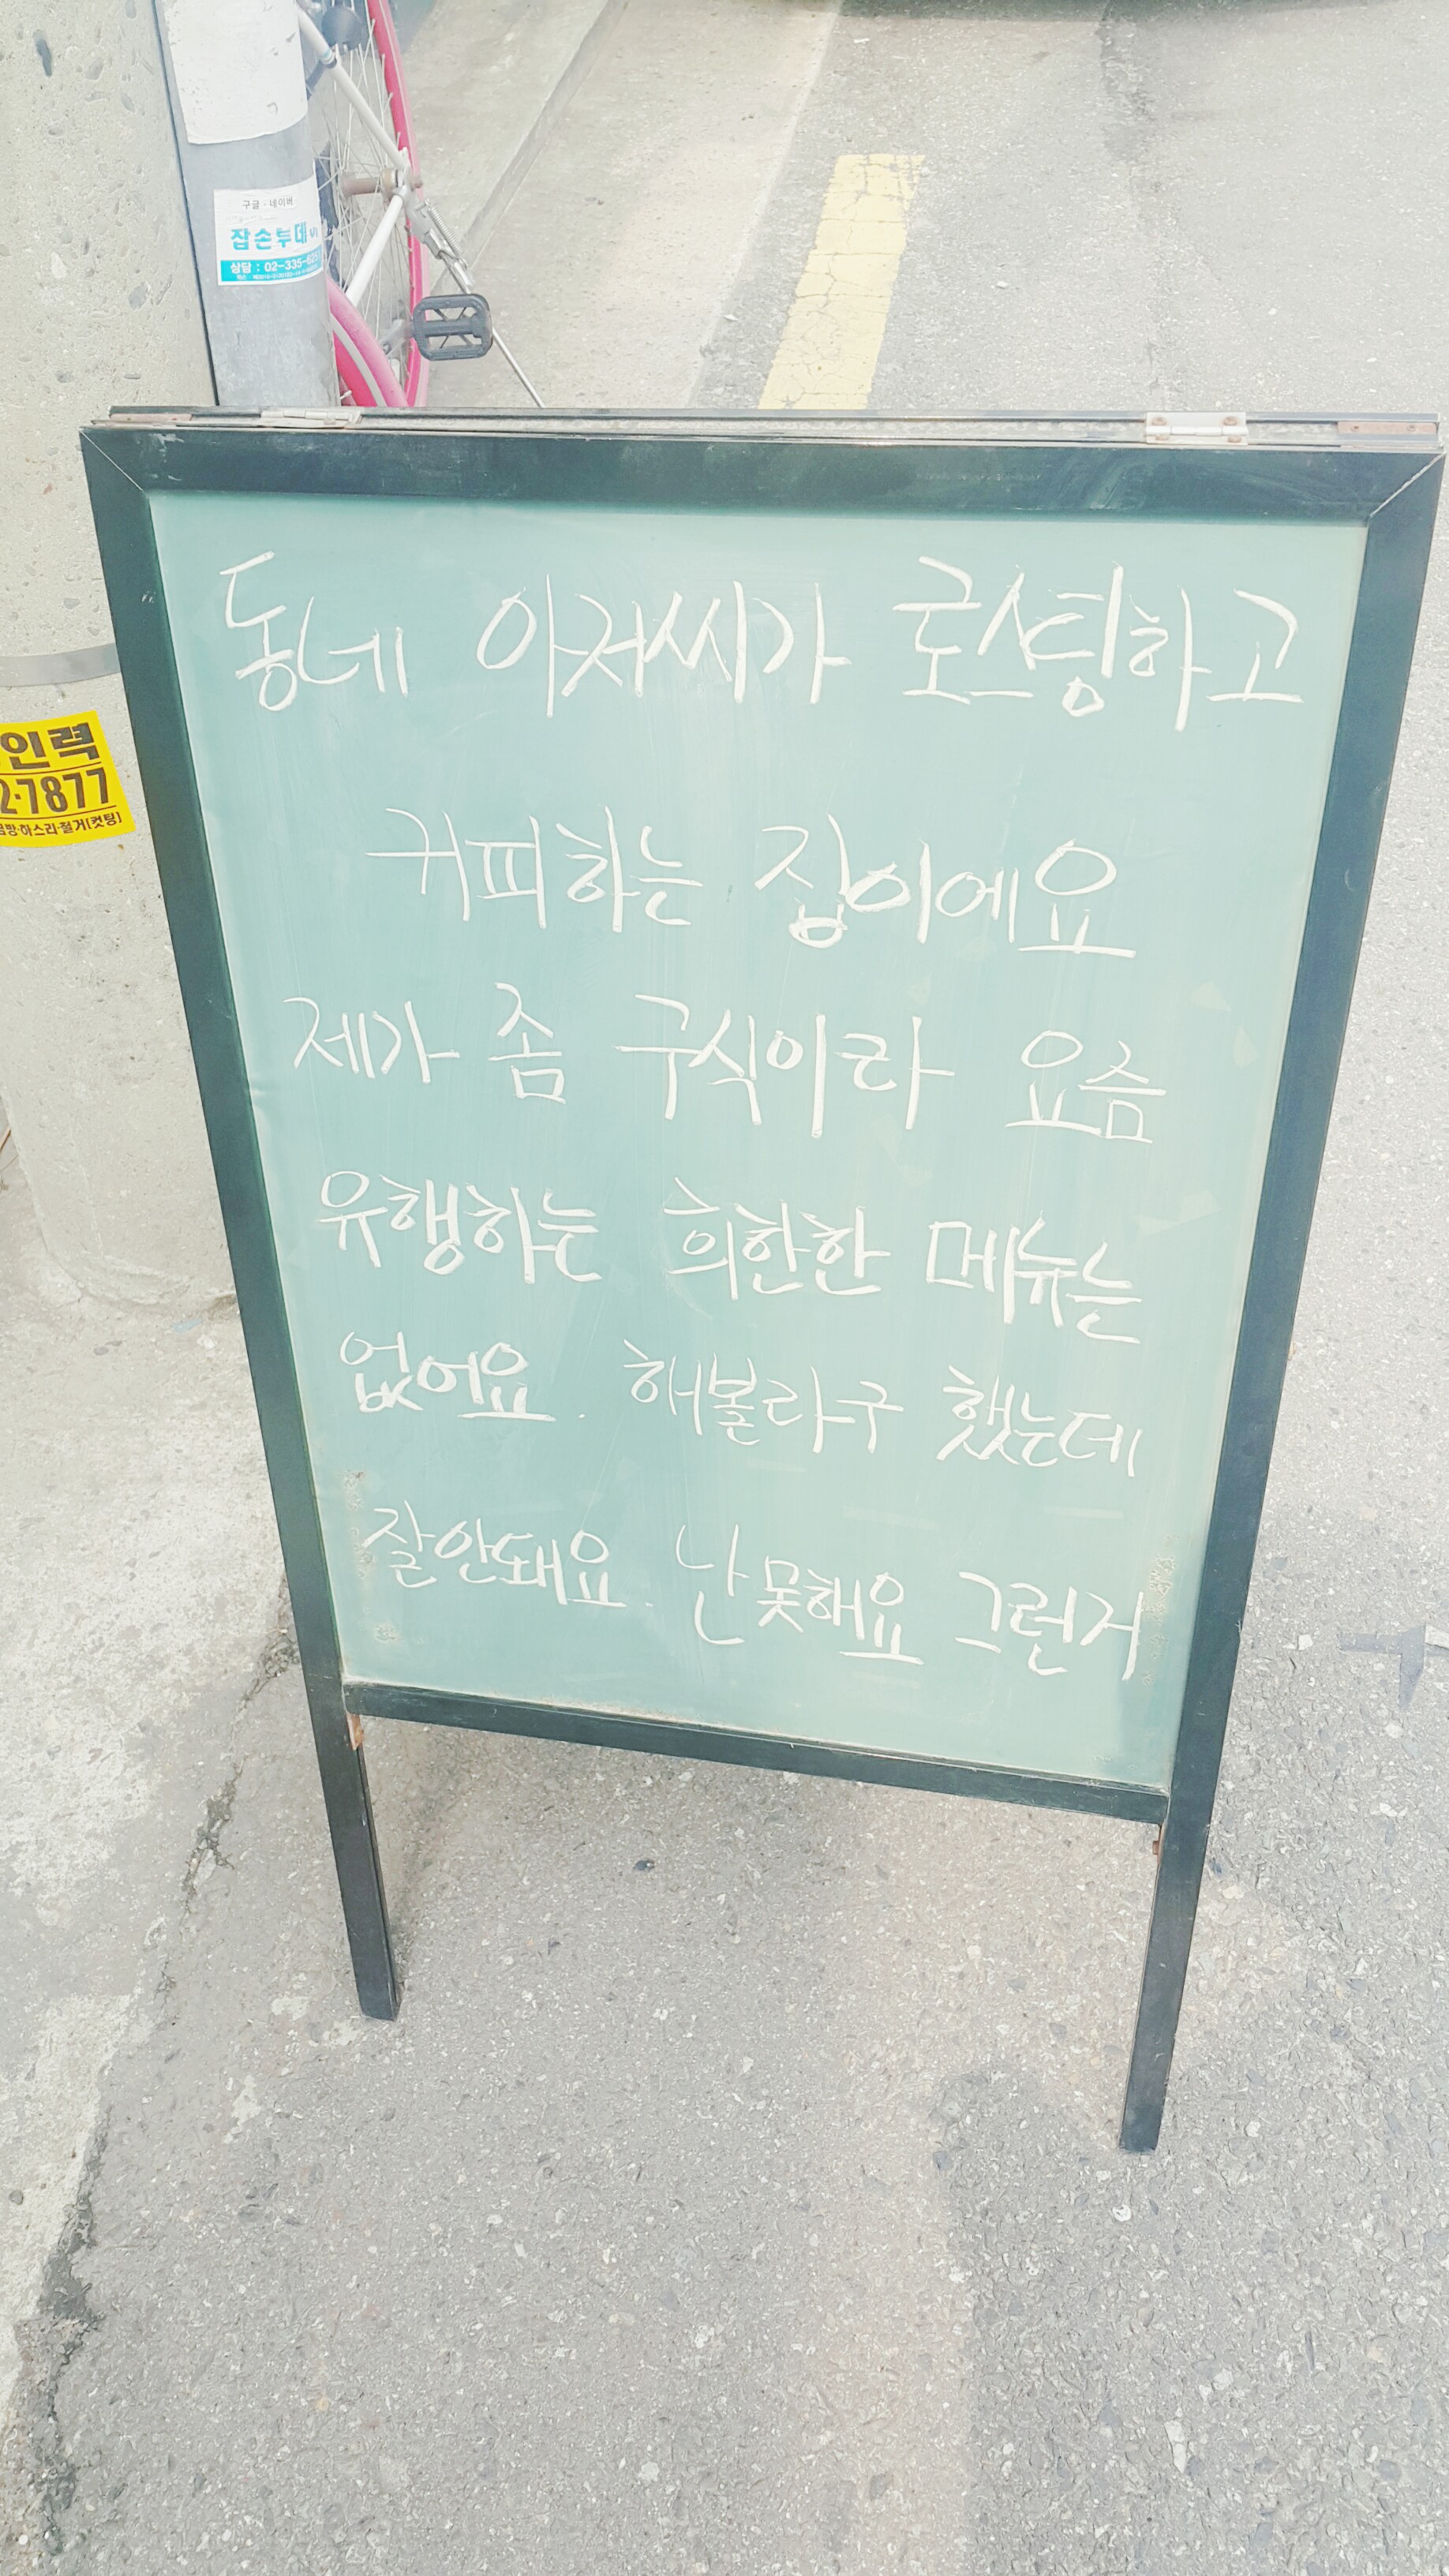 구글 · 네이버
잡손투데이
상담 : 02-335-
인력
2-7877
하스리·철거(컷팅)
동네 아저씨가 로스팅하고
커피하는 집이에요
제가 좀 구식이라 요즘
유행하는 희한한 메뉴는
없어요. 해볼라구 했는데
잘안돼요. 난 못해요 그런거